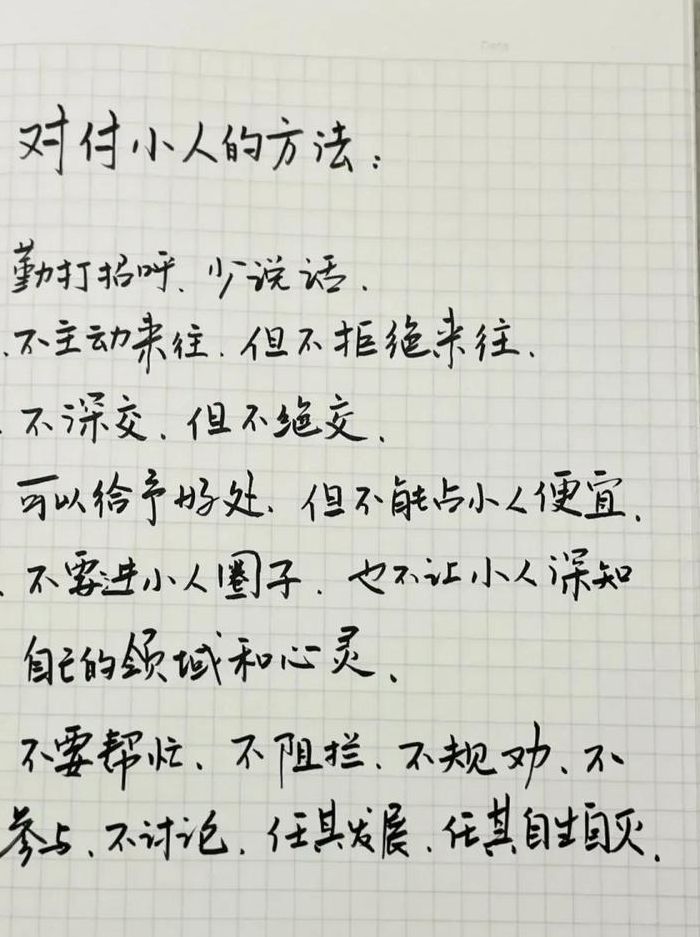 Date
对付小人的方法：
勤打招呼、少说话、
、不主动来往、但不拒绝来往、
、不深交、但不绝交、
可以给予好处、但不能占小人便宜、
、不要进小人圈子、也不让小人深知
自己的领域和心灵、
不要帮忙、不阻拦、不规劝、不
参与、不讨论、任其发展、任其自生自灭、